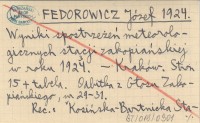 FEDOROWICZ Józef 1924.
Wyniki spostrzeżeń meteorolo-
gicznych stacji zakopiańskiej
w roku 1924. – Kraków. Stron
15 + tabela. Odbitka z Głosu Zako-
piańskiego, nr 29-31.
Rec.: Kosińska-Bartnicka Sta